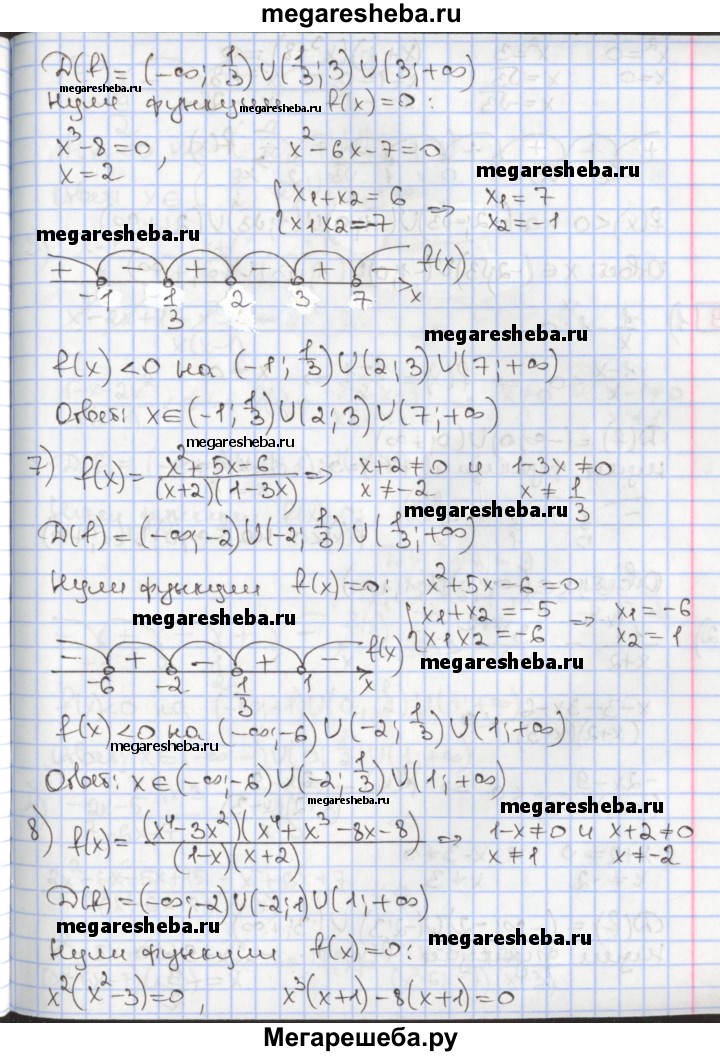 megaresheba.ru
D(f) = (-∞; 1/3) ∪ (1/3; 3) ∪ (3; +∞)
megaresheba.ru
Нули функции f(x)=0:
megaresheba.ru
x³-8=0, x²-6x-7=0
x=2
megaresheba.ru
{x1+x2=6 ⇒ x1=7
{x1x2=-7 x2=-1
megaresheba.ru
+ - + - + - f(x)
-1 1/3 2 3 7 x
megaresheba.ru
f(x)<0 на (-1; 1/3) ∪ (2; 3) ∪ (7; +∞)
Ответ: x∈(-1; 1/3) ∪ (2; 3) ∪ (7; +∞)
megaresheba.ru
7) f(x) = (x²+5x-6)/((x+2)(1-3x)) ⇒ x+2≠0 и 1-3x≠0
x≠-2 x≠1/3
megaresheba.ru
D(f) = (-∞; -2) ∪ (-2; 1/3) ∪ (1/3; +∞)
Нули функции f(x)=0: x²+5x-6=0
megaresheba.ru
{x1+x2=-5 ⇒ x1=-6
{x1x2=-6 x2=1
- + - + - f(x)
megaresheba.ru
-6 -2 1/3 1 x
f(x)<0 на (-∞; -6) ∪ (-2; 1/3) ∪ (1; +∞)
megaresheba.ru
Ответ: x∈(-∞; -6) ∪ (-2; 1/3) ∪ (1; +∞)
megaresheba.ru
megaresheba.ru
8) f(x) = ((x⁴-3x²)(x⁴+x³-8x-8))/((1-x)(x+2)) ⇒ 1-x≠0 и x+2≠0
x≠1 x≠-2
megaresheba.ru
D(f)=(-∞; -2) ∪ (-2; 1) ∪ (1; +∞)
megaresheba.ru
megaresheba.ru
Нули функции f(x)=0:
x²(x²-3)=0, x³(x+1)-8(x+1)=0
Мегарешеба.ру